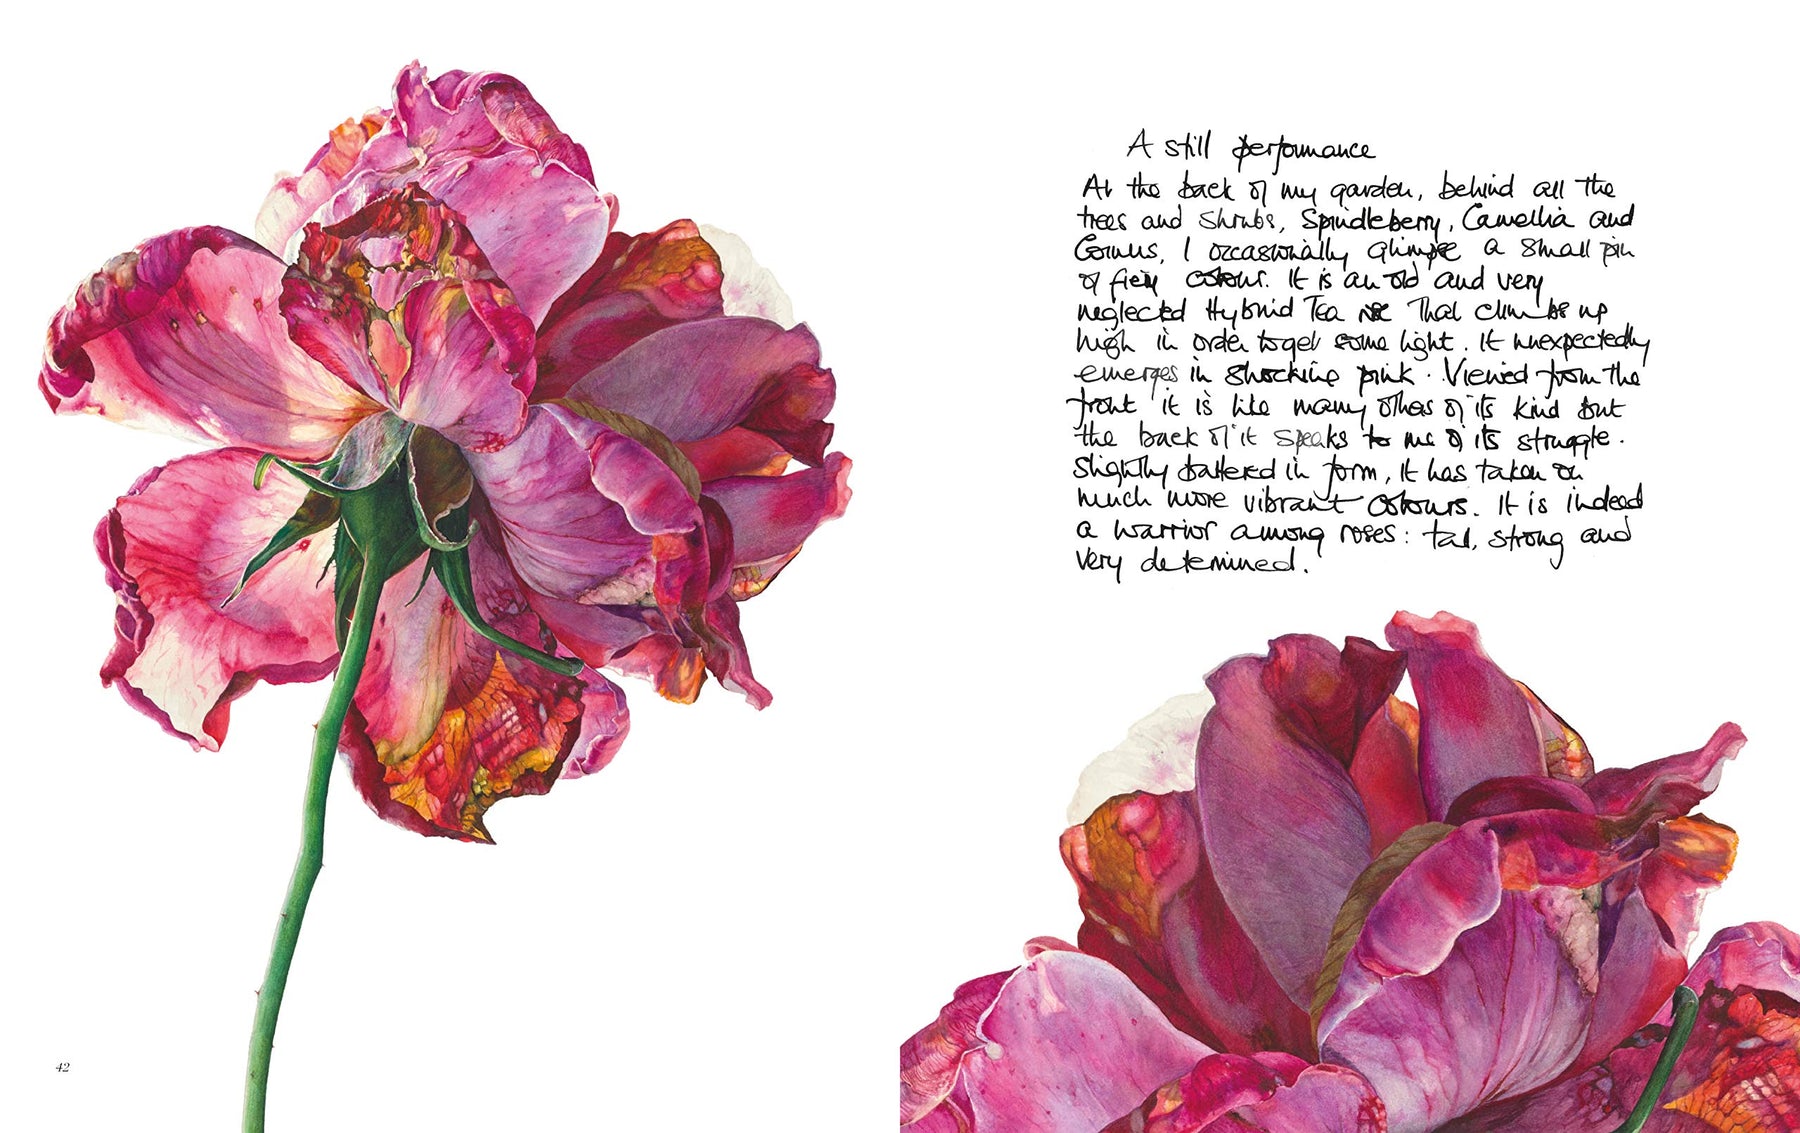 A still performance
At the back of my garden, behind all the
trees and shrubs, Spindleberry, Camellia and
Cornus, I occasionally glimpse a small pin
of fiery colour. It is an old and very
neglected Hybrid Tea rose that climbs up
high in order to get some light. It unexpectedly
emerges in shocking pink. Viewed from the
front it is like many others of its kind but
the back of it speaks to me of its struggle.
Slightly battered in form, it has taken on
much more vibrant colours. It is indeed
a warrior among roses: tall, strong and
very determined.
42